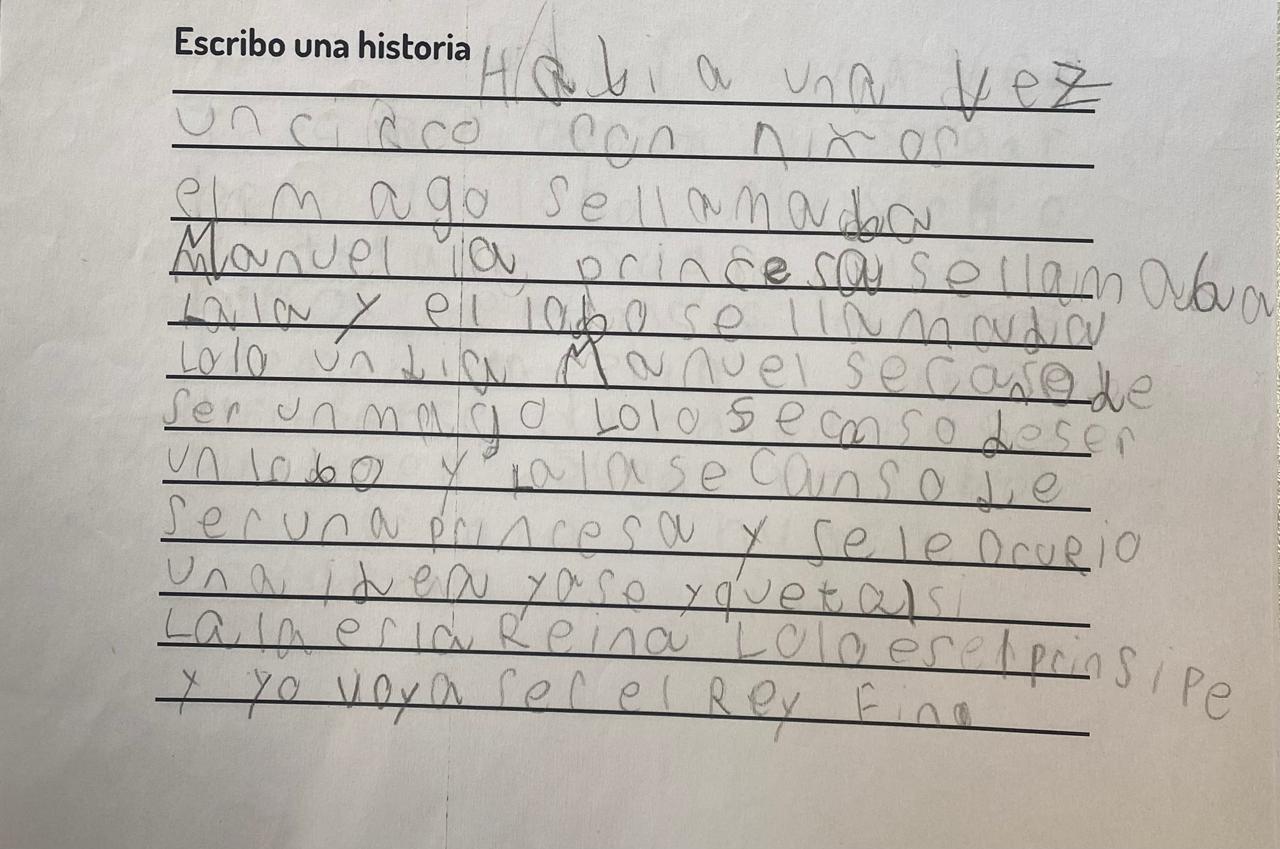 Escribo una historia Habia una vez
un circo con niños
el mago se llamaba
Manuel la princesa se llamaba
Lala y el lobo se llamada
Lolo un dia Manuel se canso de
ser un mago Lolo se canso de ser
un lobo y Lala se canso de
ser una princesa y se le ocurio
una idea ya se y que tal si
Lala es la Reina Lolo es el prinsipe
y yo voy a ser el Rey Fin